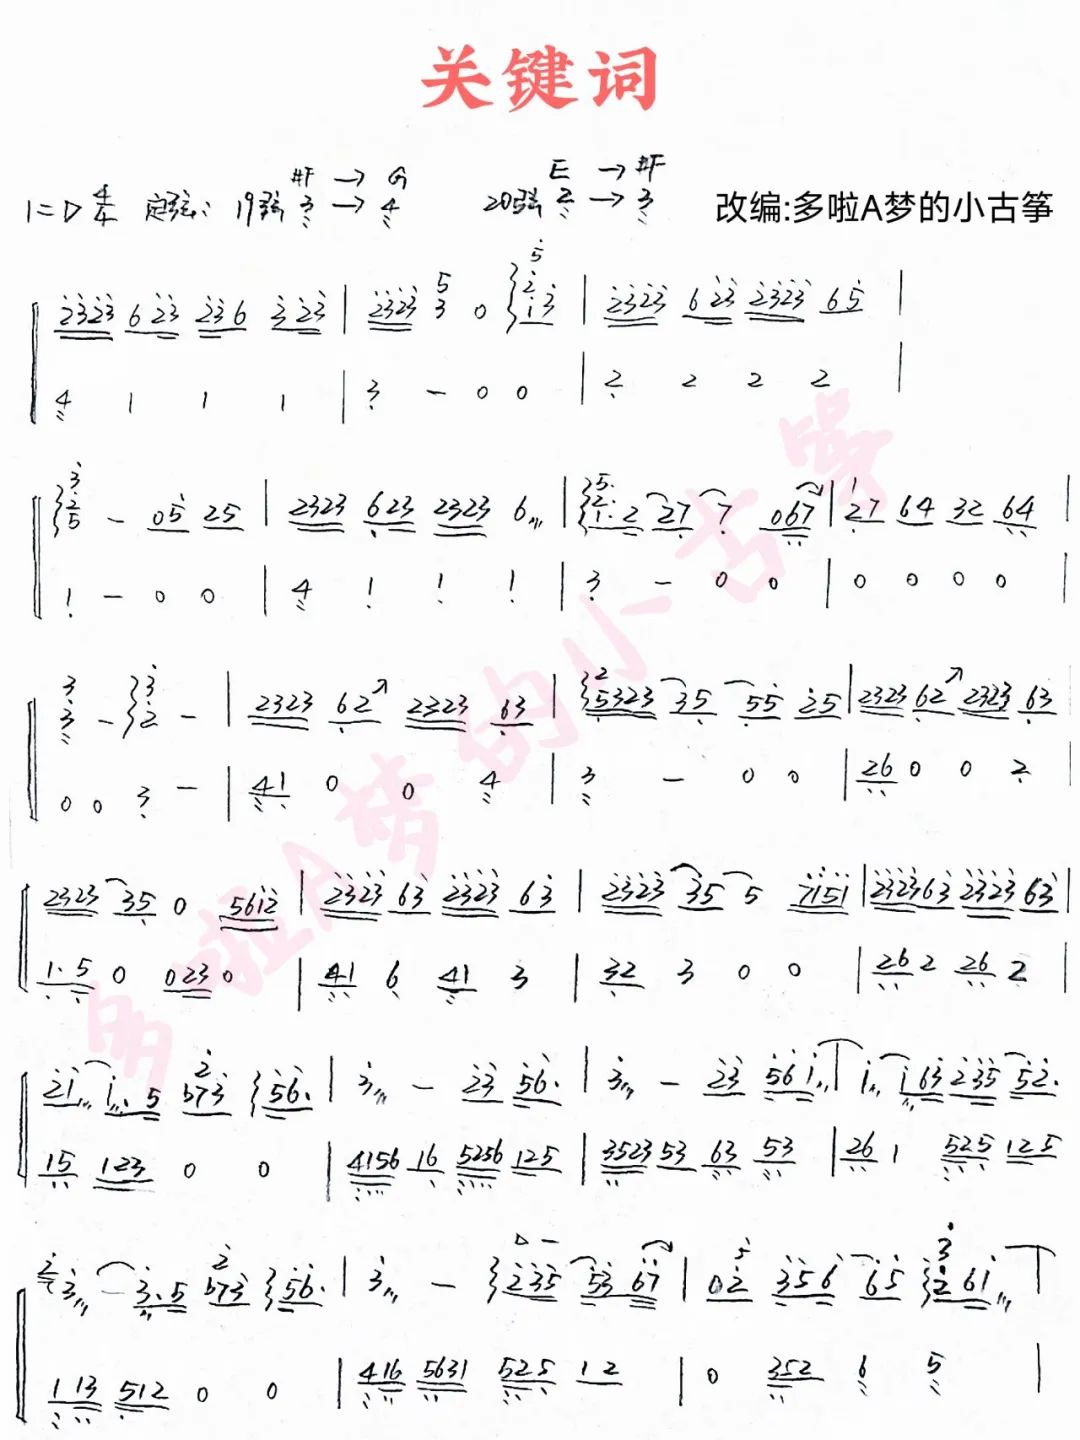 关键词
#F → G E → #F
1=D 4/4 定弦: 19弦 3 → 4 20弦 2 → 3 改编:多啦A梦的小古筝
2323 623 236 323 | 2323 3 5 0 1 2 5 3 | 2323 623 2323 65 |
4 1 1 1 | 3 - 0 0 | 2 2 2 2 |
3 2 5 - 05 25 | 2323 623 2323 6 | 5 2 1·2 27 7 067 | 27 64 32 64 |
1 - 0 0 | 4 1 1 1 | 3 - 0 0 | 0 0 0 0 |
3 3 - 3 2 - | 2323 62 2323 63 | 2 5323 35 55 25 | 2323 62 2323 63 |
0 0 3 - | 41 0 0 4 | 3 - 0 0 | 26 0 0 2 |
2323 35 0 5612 | 2323 63 2323 63 | 2323 35 5 7151 | 2323 63 2323 63 |
1·5 0 023 0 | 41 6 41 3 | 32 3 0 0 | 26 2 26 2 |
21 1·5 2 b73 56· | 3 - 23 56· | 3 - 23 561 | 1 163 235 52· |
15 123 0 0 | 4156 16 5256 125 | 3523 53 63 53 | 26 1 525 125
2 3 - 3·5 2 b73 56· | 3 - 235 53 67 | 02 5 356 65 3 2 61 |
113 512 0 0 | 416 5631 525 12 | 0 352 6 5 |
多啦A梦的小古筝